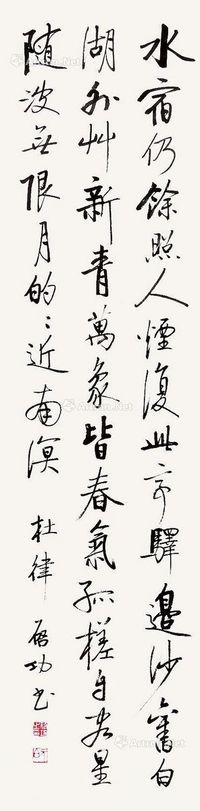 水宿仍餘照人煙復此亭驛邊沙舊白
湖外艸新青萬象皆春氣孤槎自客星
随波無限月的〻近南溟 杜律 启功書